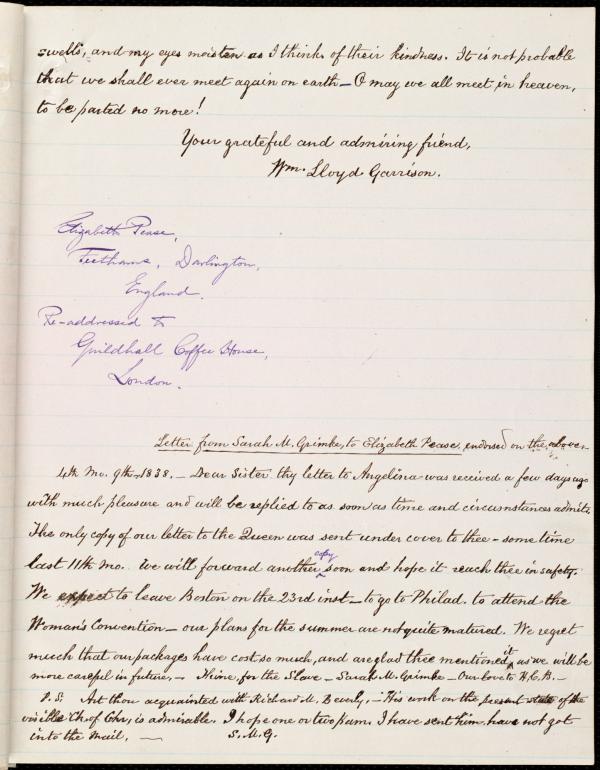 swells, and my eyes moisten as I think of their kindness. It is not probable
that we shall ever meet again on earth – O may we all meet in heaven,
to be parted no more!
Your grateful and admiring friend,
Wm. Lloyd Garrison.
Elizabeth Pease,
Feethams, Darlington,
England.
Re-addressed to
Guildhall Coffee House,
London.
Letter from Sarah M. Grimke, to Elizabeth Pease, endorsed on the above.
4th Mo. 9th, 1838. – Dear Sister thy letter to Angelina was received a few days ago
with much pleasure and will be replied to as soon as time and circumstances admits.
The only copy of our letter to the Queen was sent under cover to thee – some time
last 11th mo. We will forward another copy soon and hope it reach thee in safety.
We expect to leave Boston on the 23rd inst – to go to Philad. to attend the
Woman's Convention – our plans for the summer are not quite matured. We regret
much that our packages have cost so much, and are glad thee mentioned it as we will be
more careful in future. – Thine, for the Slave – Sarah M. Grimke – Our love to
P.S. Art thou acquainted with Richard M. Beverly, – His work on the present state of the
visible Ch. of Chr, is admirable. I hope one or two pam. I have sent him, have not got
into the mail. – S. M. G.